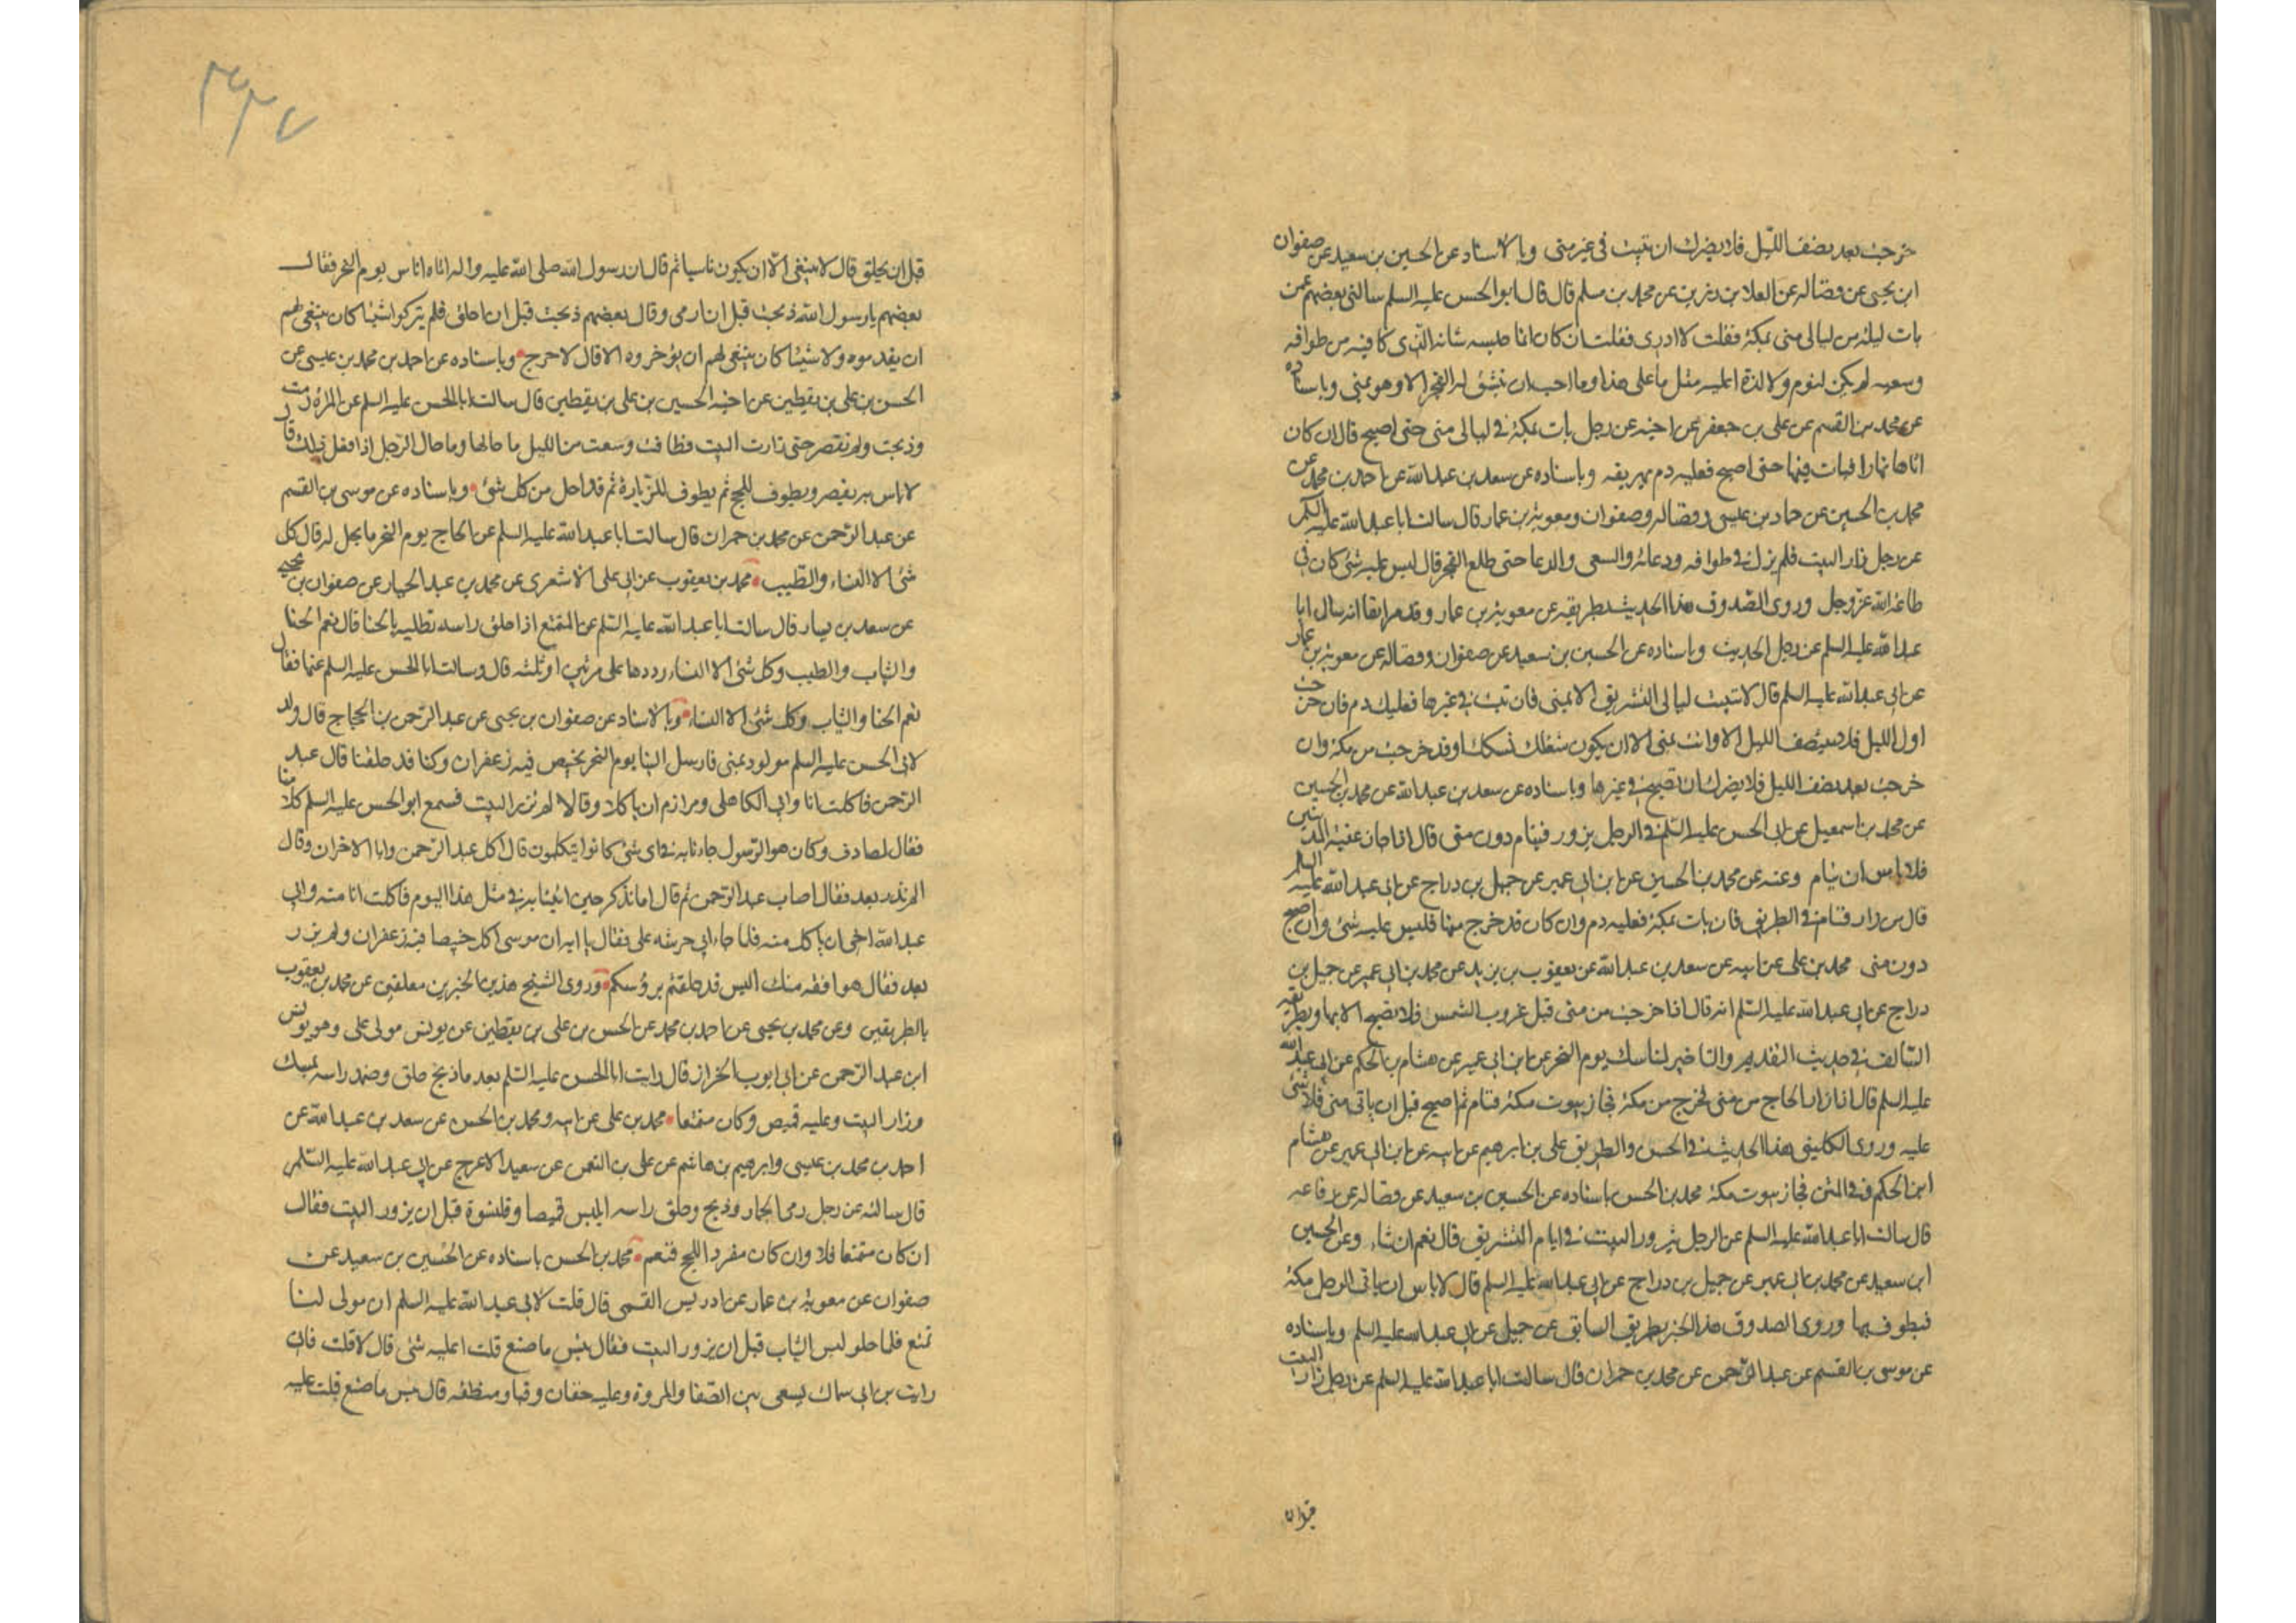 خرجت بعد نصف الليل فلا يضرك ان تبيت في غير منى وبالاسناد عن الحسين بن سعيد عن صفوان
ابن يحيى عن فضاله عن العلا بن رزين عن محمد بن مسلم قال قال ابو الحسن عليه السلم سالني بعضهم عمن
بات ليلة من ليالي منى بمكة فقلت لا ادرى فقلت ان كان انما حبسه شانه الذى كا فيه من طوافه
وسعيه لم يكن لنوم ولا لذة اعليه مثل ما على هذا وما احب ان ينشق له الفجر الا وهو بمنى وباسناده
عن محمد بن القسم عن على بن جعفر عن اخيه عن رجل بات بمكة في ليالي منى حتى اصبح قال ان كان
اتاها نهارا فبات فيها حتى اصبح فعليه دم يهريقه وباسناده عن سعد بن عبد الله عن احمد بن محمد عن
محمد بن الحسين عن حماد بن عيسى وفضاله وصفوان ومعوية بن عمار قال سالت ابا عبد الله عليه السلم
عن رجل زار البيت فلم يزل في طوافه ودعائه والسعى والدعا حتى طلع الفجر قال ليس عليه شئ كان في
طاعة الله عز وجل وروى الصدوق هذا الحديث بطريقه عن معوية بن عمار وقد مر ايفا انه سال ابا
عبد الله عليه السلم عن رجل الحديث وباسناده عن الحسين بن سعيد عن صفوان وفضاله عن معوية بن عمار
عن ابى عبد الله عليه السلم قال لا تبيت ليالى التشريق الا بمنى فان تبت في غيرها فعليك دم فان خرجت
اول الليل فلا ينتصف الليل الا وانت بمنى الا ان يكون شغلك نسكك او قد خرجت من مكة وان
خرجت بعد نصف الليل فلا يضرك ان تصبح في غيرها وباسناده عن سعد بن عبد الله عن محمد بن الحسين
عن محمد بن اسمعيل عن ابى الحسن عليه السلم في الرجل يزور فينام دون منى قال اذا جاز عقبة المدنيين
فلا باس ان ينام وعنه عن محمد بن الحسين عن ابن ابى عمير عن جميل بن دراج عن ابى عبد الله عليه السلم
قال من زار فنام في الطريق فان بات بمكة فعليه دم وان كان قد خرج منها فليس عليه شئ وان اصبح
دون منى محمد بن على عن ابيه عن سعد بن عبد الله عن يعقوب بن يزيد عن محمد بن ابى عمير عن جميل بن
دراج عن ابى عبد الله عليه السلم انه قال اذا خرجت من منى قبل غروب الشمس فلا تصبح الا بها وبطريقه
السالف في حديث التقديم والتاخير لمناسك يوم النحر عن ابن ابى عمير عن هشام بن الحكم عن ابى عبد الله
عليه السلم قال اذا زار الحاج من منى فخرج من مكة فجاز بيوت مكة فنام ثم اصبح قبل ان ياتى منى فلا شئ
عليه وروى الكلينى هذا الحديث في الحسن والطريق على بن ابرهيم عن ابيه عن ابن ابى عمير عن هشام
ابن الحكم في المتن فجاز بيوت مكة محمد بن الحسن باسناده عن الحسين بن سعيد عن فضاله عن رفاعه
قال سالت ابا عبد الله عليه السلم عن الرجل يزور البيت في ايام التشريق قال نعم ان شاء وعن الحسين
ابن سعيد عن محمد بن ابى عمير عن جميل بن دراج عن ابى عبد الله عليه السلم قال لا باس ان ياتى الرجل مكة
فيطوف بها وروى الصدوق هذا الخبر بطريق السابق عن جميل عن ابى عبد الله عليه السلم وباسناده
عن موسى بن القسم عن عبد الرحمن عن محمد بن حمران قال سالت ابا عبد الله عليه السلم عن رجل زار البيت
قبل ان
٣٣٧
قبل ان يحلق قال لا ينبغى الا ان يكون ناسيا ثم قال ان رسول الله صلى الله عليه واله اتاه اناس يوم النحر فقال
بعضهم يا رسول الله ذبحت قبل ان ارمى وقال بعضهم ذبحت قبل ان احلق فلم يتركوا شيئا كان ينبغى لهم
ان يقدموه ولا شيئا كان ينبغى لهم ان يؤخروه الا قال لا حرج وباسناده عن احمد بن محمد بن عيسى عن
الحسن بن على بن يقطين عن اخيه الحسين بن على بن يقطين قال سالت ابا الحسن عليه السلم عن المراة رمت
وذبحت ولم تقصر حتى زارت البيت فطافت وسعت من الليل ما حالها وما حال الرجل اذا فعل ذلك قال
لا باس به يقصر ويطوف للحج ثم يطوف للزيارة ثم قد احل من كل شئ وباسناده عن موسى بن القسم
عن عبد الرحمن عن محمد بن حمران قال سالت ابا عبد الله عليه السلم عن الحاج يوم النحر ما يحل له قال كل
شئ الا النساء والطيب محمد بن يعقوب عن ابى على الاشعرى عن محمد بن عبد الجبار عن صفوان بن يحيى
عن سعيد بن يسار قال سالت ابا عبد الله عليه السلم عن المتمتع اذا حلق راسه يطليه بالحنا قال نعم الحنا
والثياب والطيب وكل شئ الا النساء رددها على مرتين او ثلثه قال وسالت ابا الحسن عليه السلم عنها فقال
نعم الحنا والثياب وكل شئ الا النساء وبالاسناد عن صفوان بن يحيى عن عبد الرحمن بن الحجاج قال ولد
لابى الحسن عليه السلم مولود بمنى فارسل الينا يوم النحر بخبيص فيه زعفران وكنا قد حلقنا قال عبد
الرحمن فاكلت انا وابى الكاهلى ومرازم ان ياكلا وقالا لم نزر البيت فسمع ابو الحسن عليه السلم كلامنا
فقال لمصادف وكان هو الرسول جاءنا به في اى شئ كانوا يتكلمون قال اكل عبد الرحمن وابا الاخران وقال
لم نزر بعد فقال اصاب عبد الرحمن ثم قال اما تذكر حين اتينا به في مثل هذا اليوم فاكلت انا منه وابى
عبد الله اخى ان ياكل منه فلما جاء ابى حرشه على فقال يا ابه ان موسى اكل خبيصا فيه زعفران ولم يزر
بعد فقال هو افقه منك اليس قد حلقتم رؤسكم وروى الشيخ هذين الخبرين معلقين عن محمد بن يعقوب
بالطريقين وعن محمد بن يحيى عن احمد بن محمد عن الحسن بن على بن يقطين عن يونس مولى على وهو يونس
ابن عبد الرحمن عن ابى ايوب الخراز قال رايت ابا الحسن عليه السلم بعد ما ذبح حلق وضمد راسه بمسك
وزار البيت وعليه قميص وكان متمتعا محمد بن على عن ابيه ومحمد بن الحسن عن سعد بن عبد الله عن
احمد بن محمد بن عيسى وابرهيم بن هاشم عن على بن النعمن عن سعيد الاعرج عن ابى عبد الله عليه السلم
قال سالته عن رجل رمى الجمار وذبح وحلق راسه ايلبس قميصا وقلنسوة قبل ان يزور البيت فقال
ان كان متمتعا فلا وان كان مفردا للحج فنعم محمد بن الحسن باسناده عن الحسين بن سعيد عن
صفوان عن معوية بن عمار عن ادريس القمى قال قلت لابى عبد الله عليه السلم ان مولى لنا
تمتع فلما حلق لبس الثياب قبل ان يزور البيت فقال بئس ما صنع قلت اعليه شئ قال لا قلت فانى
رايت بن ابى سماك يسعى بين الصفا والمروة وعليه خفان وقبا ومنطقه قال بئس ما صنع قلت عليه